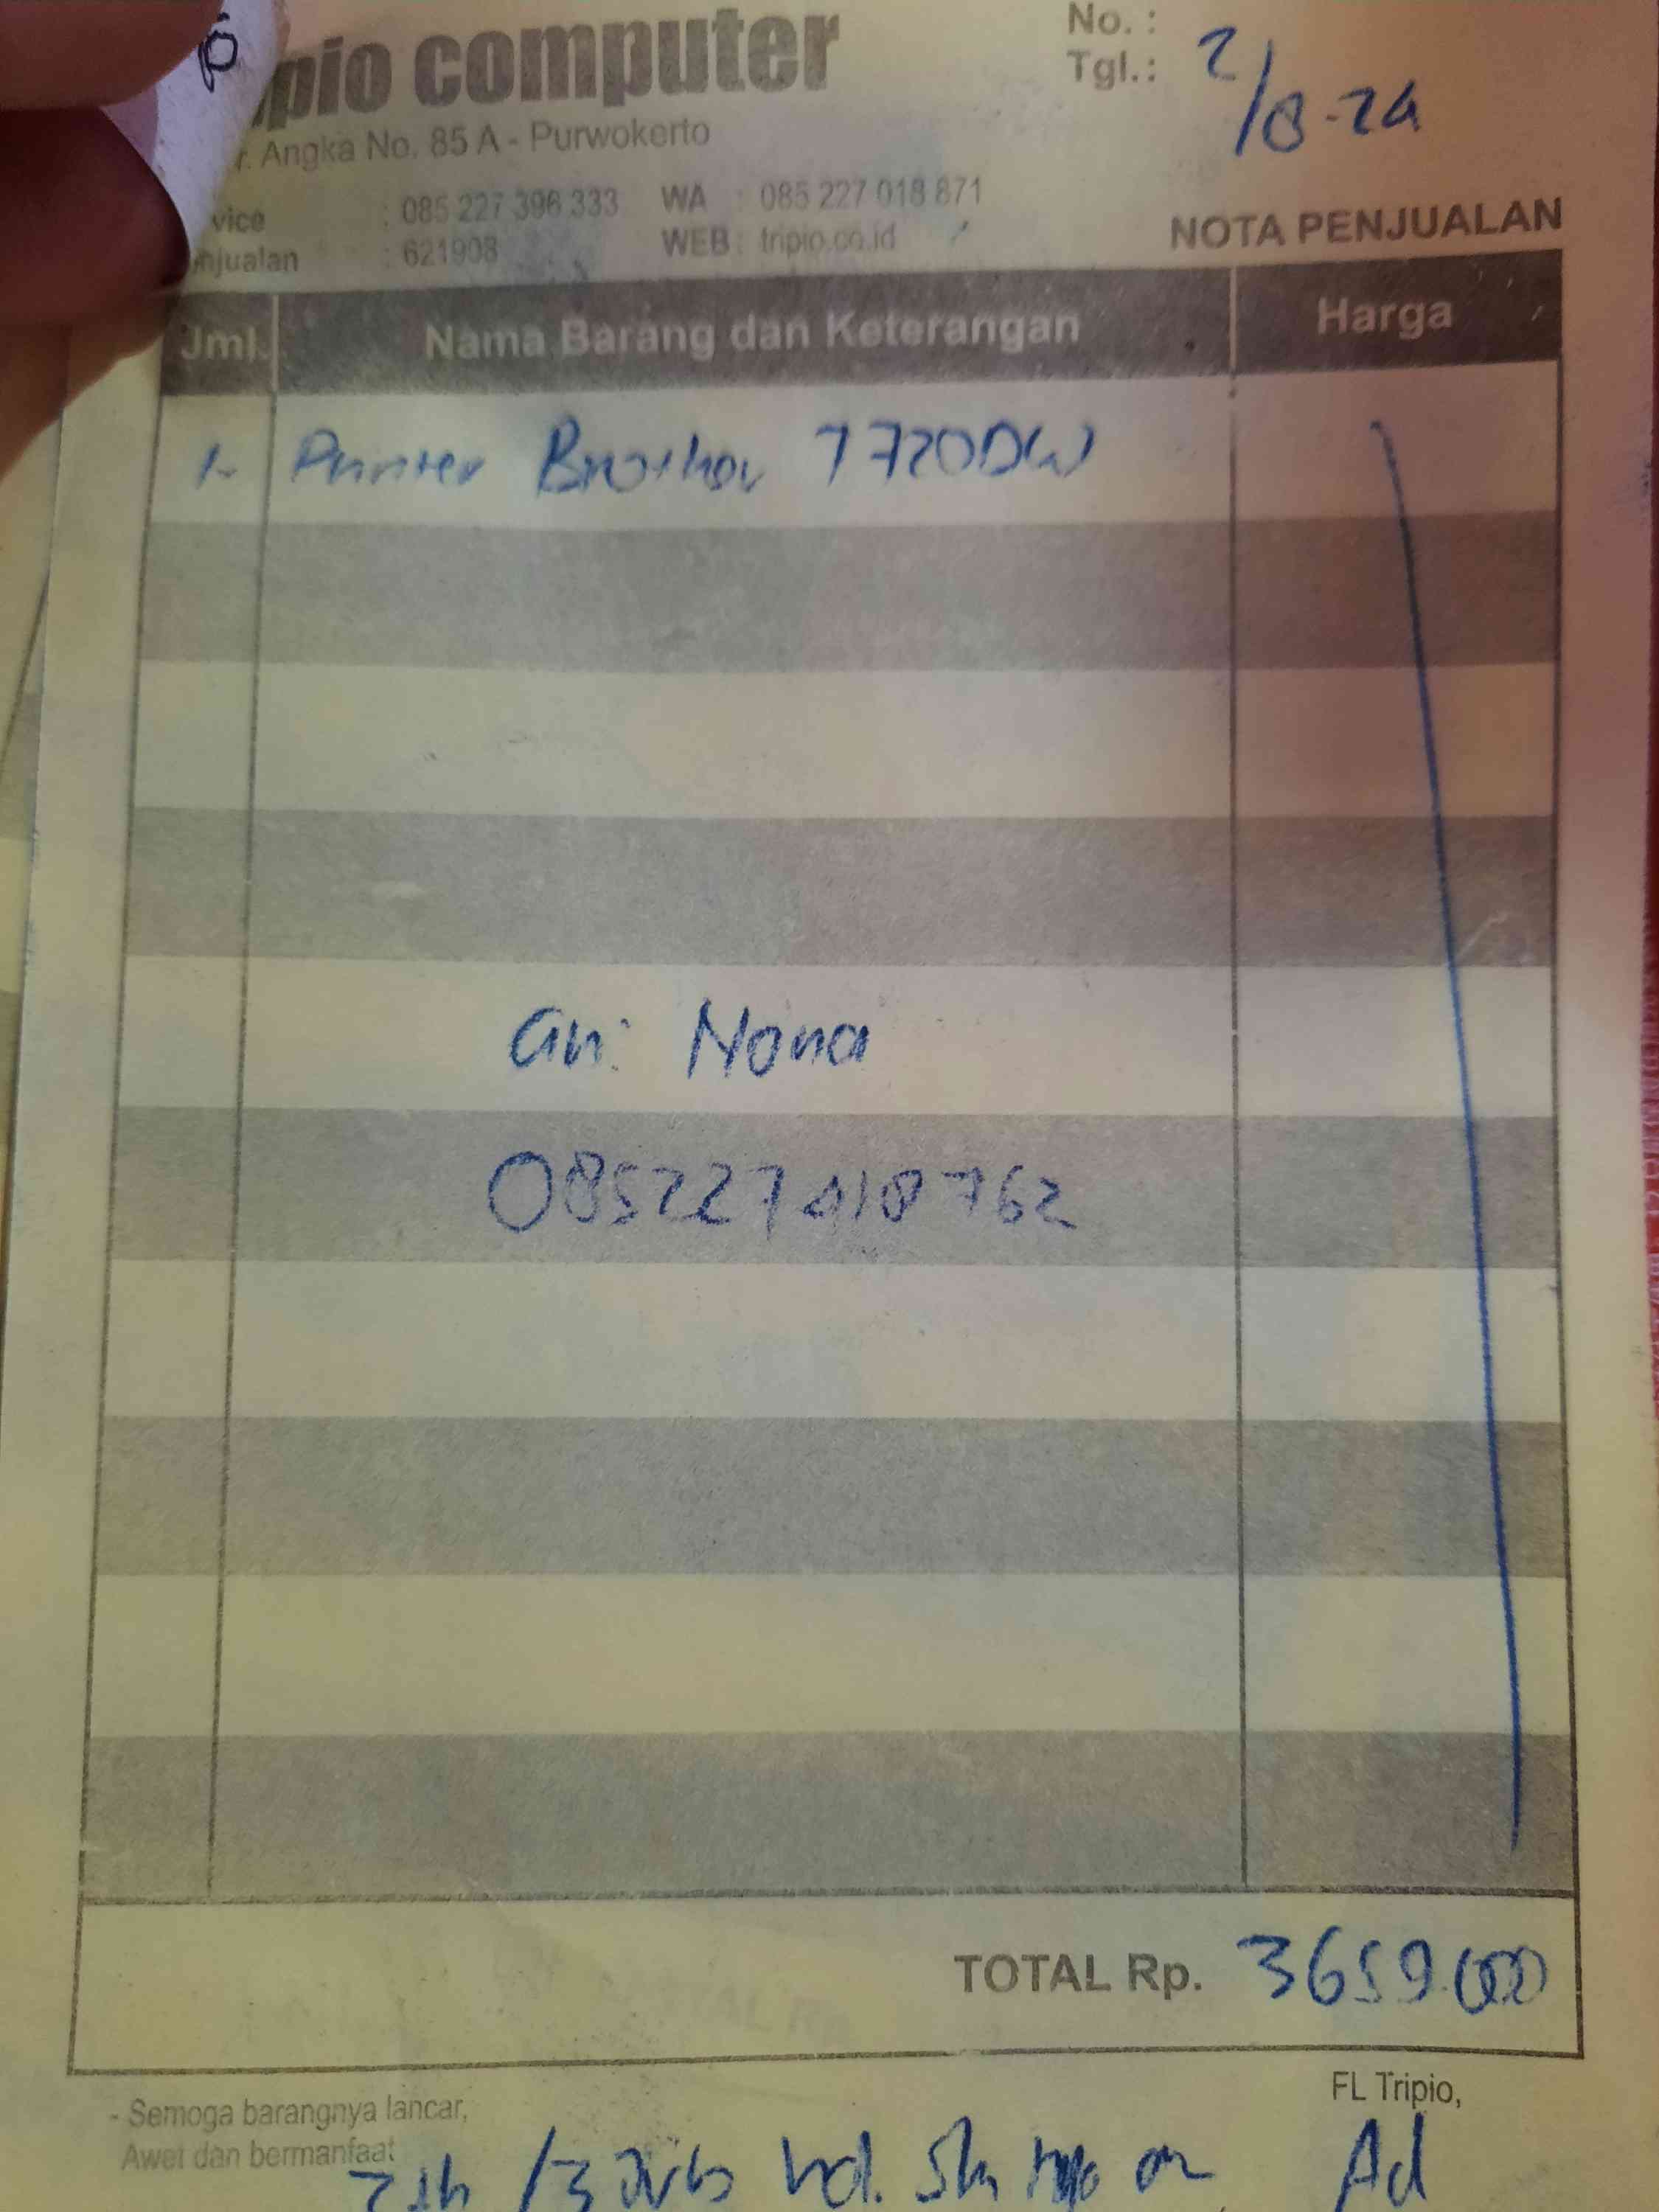 pio computer
No. :
Tgl.: 2/8-24
r. Angka No. 85 A - Purwokerto
vice : 085 227 396 333 WA : 085 227 018 871
njualan : 621908 WEB : tripio.co.id
NOTA PENJUALAN
Jml. Nama Barang dan Keterangan Harga
1- Printer Brother 7720DW
an: Nona
085227418762
TOTAL Rp. 3659.000
- Semoga barangnya lancar,
Awet dan bermanfaat
FL Tripio,